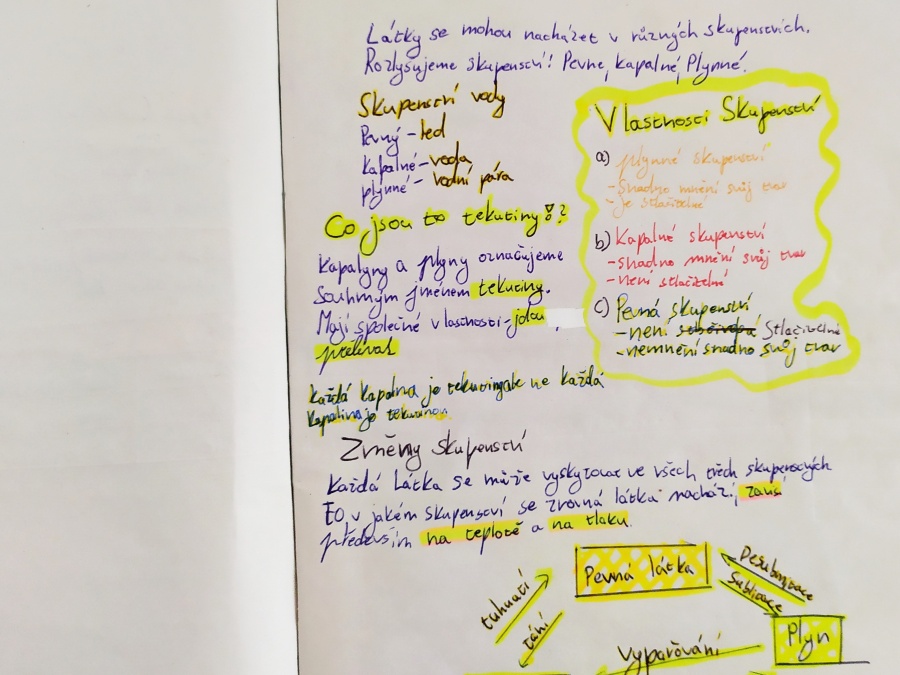 Látky se mohou nacházet v různých skupenstvích.
Rozlyšujeme skupenství! Pevne, kapalné, Plynné.
Skupenství vody
Pevný - led
Kapalné - voda
plynné - vodní pára
Co jsou to tekutiny!?
Kapalyny a plyny označujeme
souhrným jménem tekutiny.
Mají společné vlastnosti - jdou
přelívat
Každá kapalna je tekutina ale ne každá
kapalina je tekutinou.
Vlastnosti Skupenství
a) plynné skupenství
- Snadno mnění svůj tvar
- je stlačitelné
b) Kapalné skupenství
- snadno mnění svůj tvar
- není stlačitelní
c) Pevná skupenství
- není Stlačitelné
- nemnění snadno svůj tvar
Změny skupenství
Každá Látka se může vyskytovat ve všech třech skupenstvých
to, v jakém skupenství se zrovná látka nachází, zavisí
především na teplotě a na tlaku.
Pevná látka
Desublimace
Sublimace
tuhnutí
tání
Plyn
Vypařování